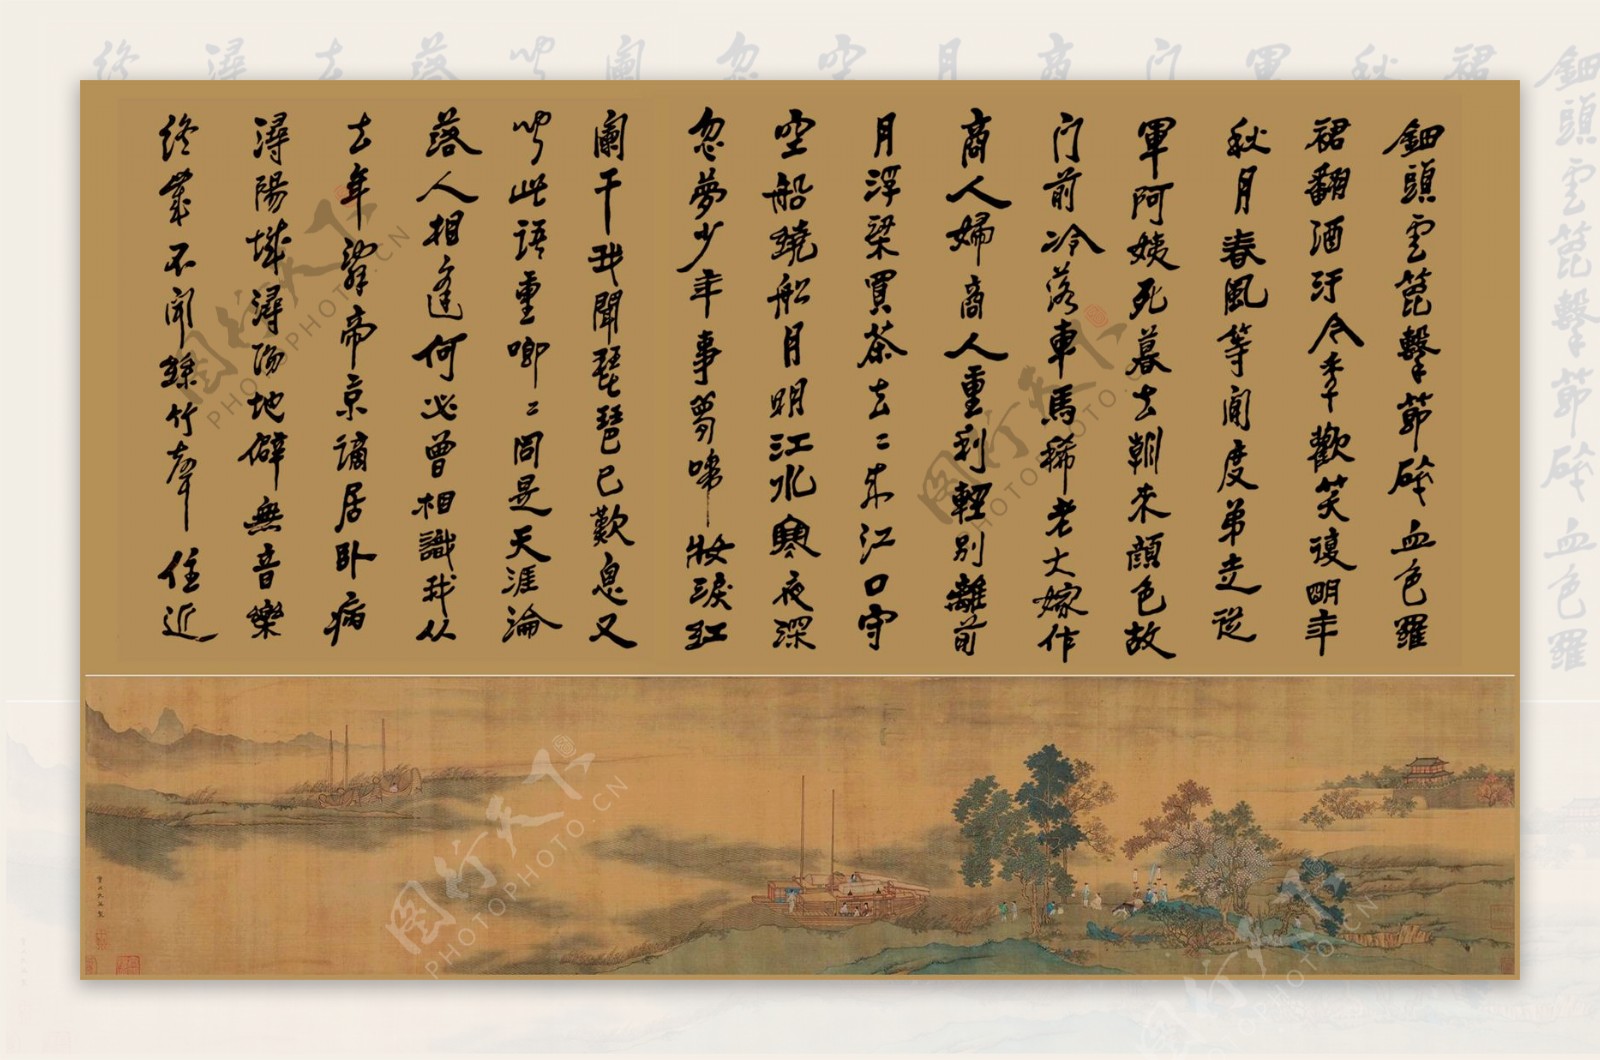 鈿頭雲篦擊節碎血色羅
裙翻酒汙今年歡笑復明年
秋月春風等閒度弟走從
軍阿姨死暮去朝来顏色故
门前冷落車馬稀老大嫁作
商人婦商人重利輕别離前
月浮梁買茶去二来江口守
空船繞船月明江水寒夜深
忽夢少年事夢啼妝淚紅
闌干我聞琵琶已歎息又
聞此語重唧二同是天涯淪
落人相逢何必曾相識我从
去年辭帝京謫居卧病
潯陽城潯陽地僻無音樂
终歲不聞絲竹聲住近
图行天下
PHOTOPHOTO.CN
图行天下
PHOTOPHOTO.CN
图行天下
PHOTOPHOTO.CN